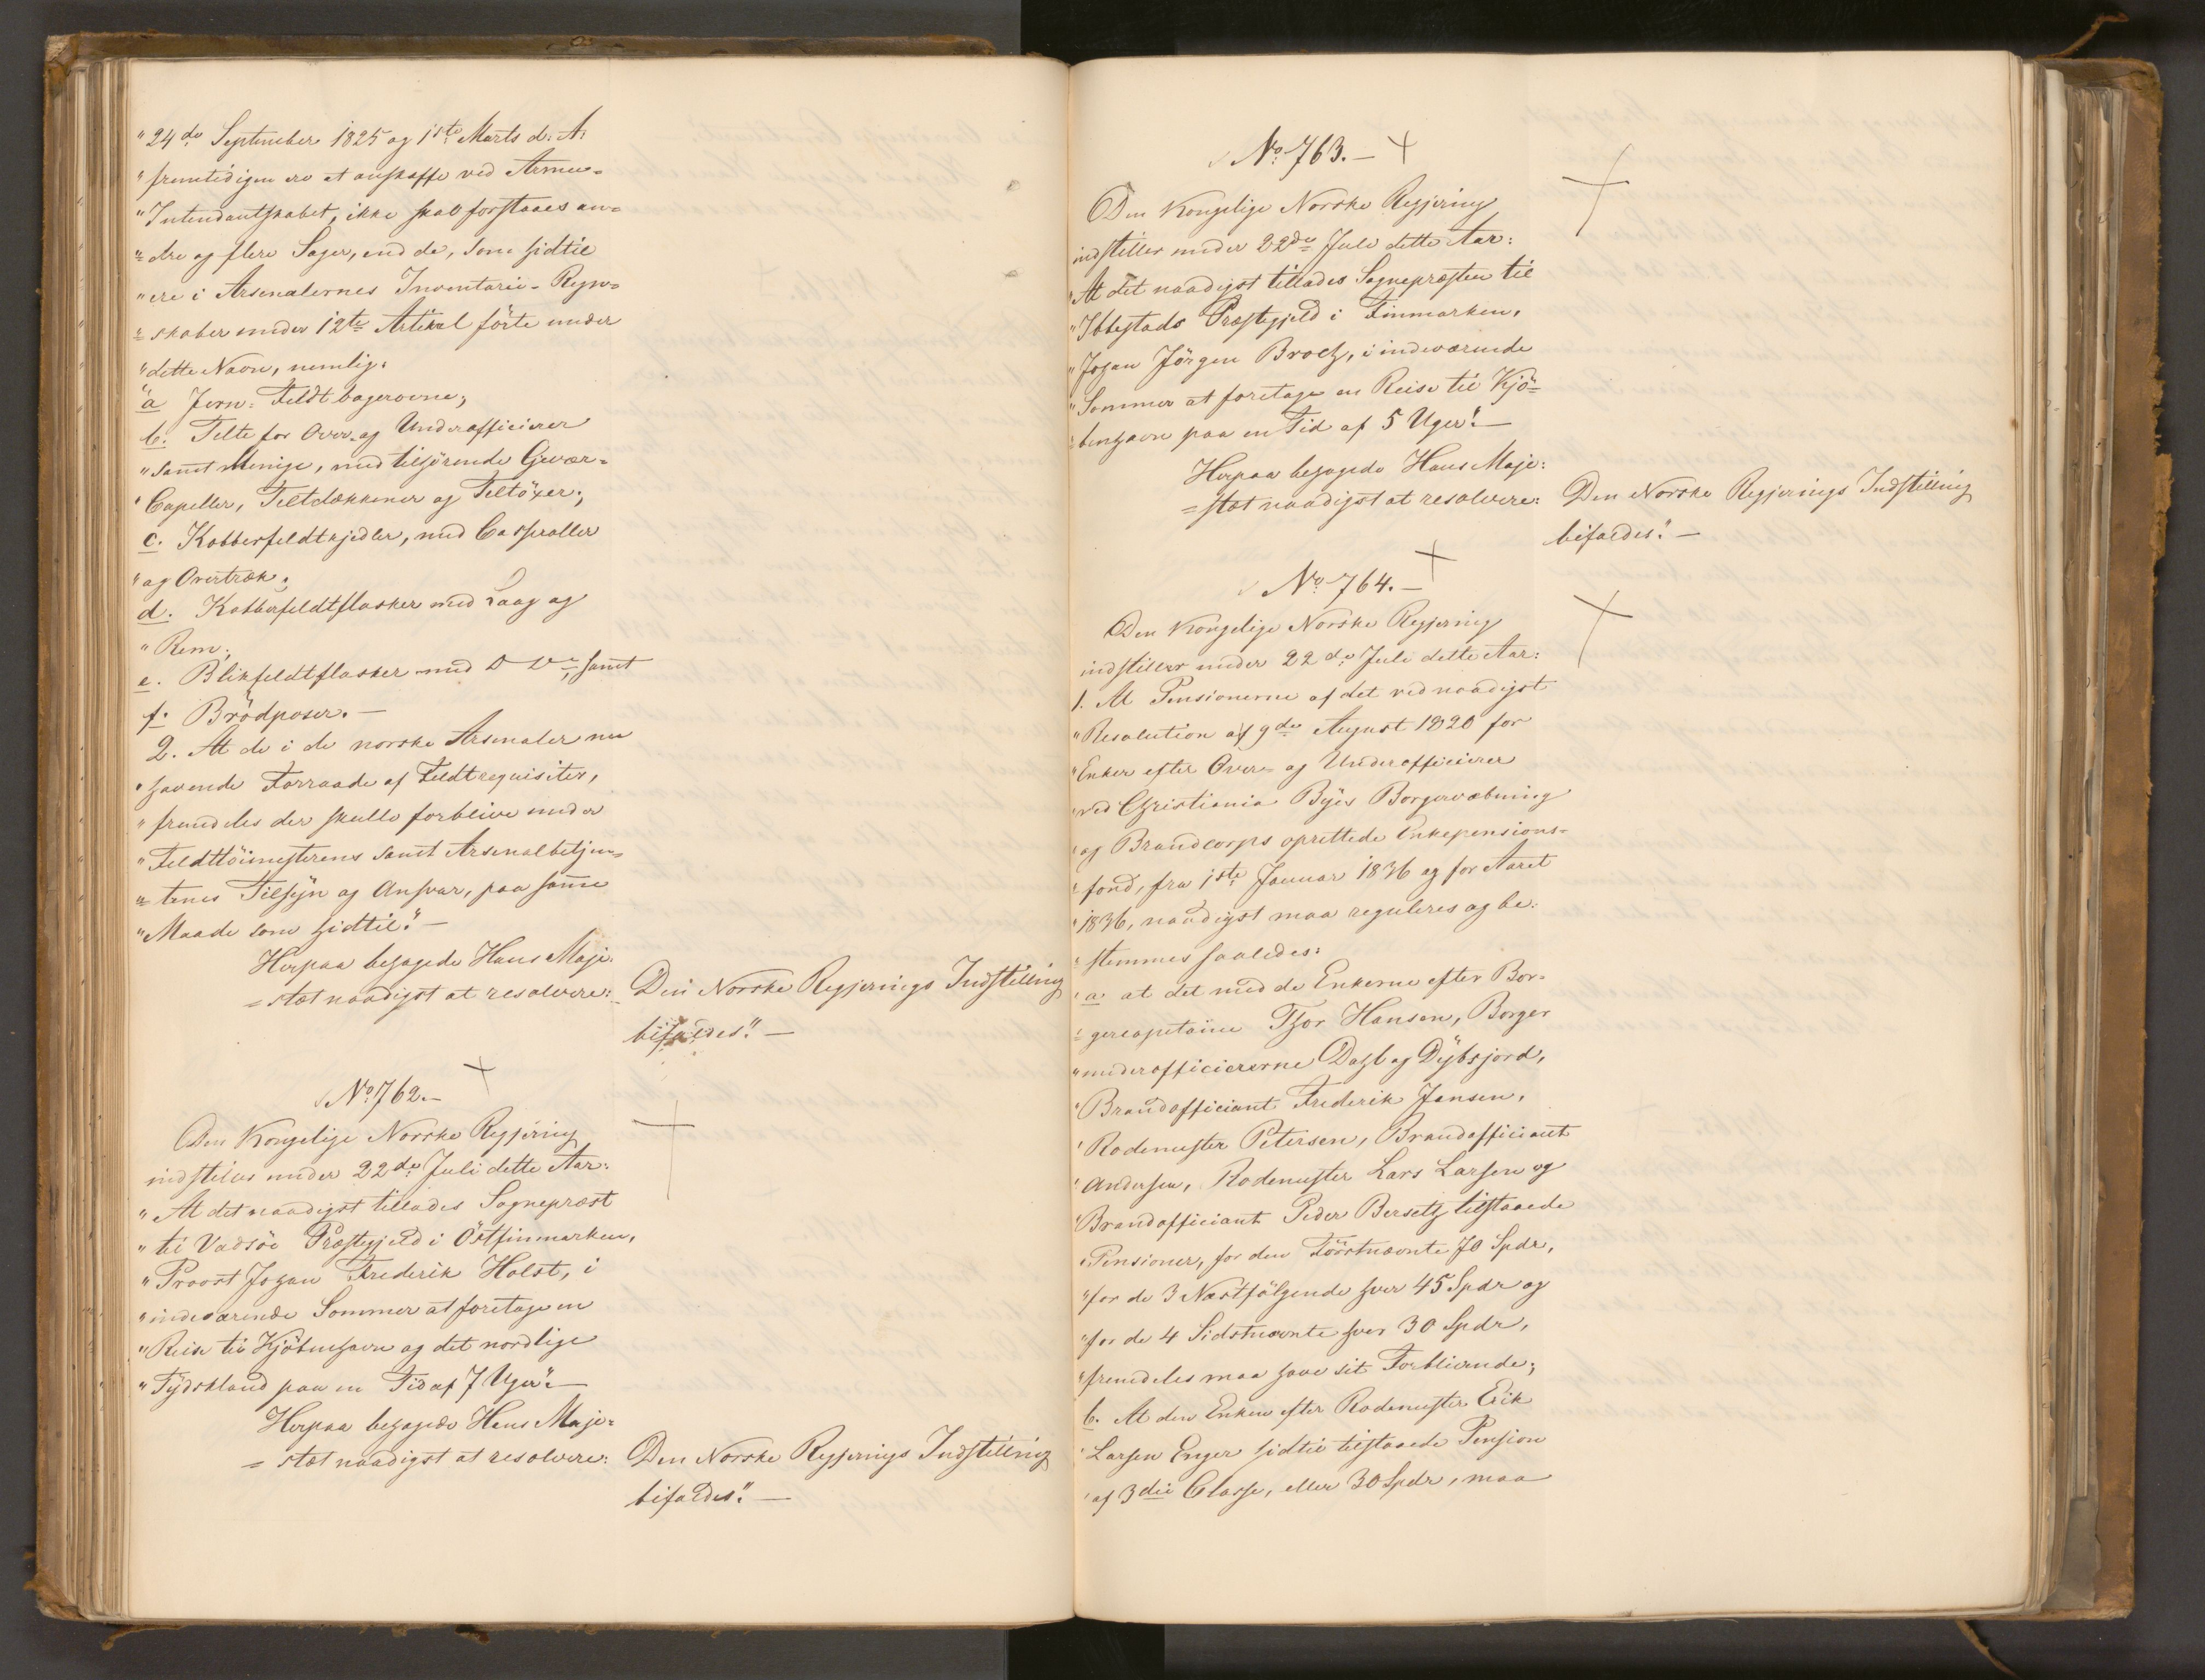 "24de September 1825 og 1ste Marts d. A.
"fremtidigen ere at anskaffe ved Armee-
"Intendantskabet, ikke skal forstaaes an-
"=dre og flere Sager, end de, som hidtil
"ere i Arsenalernes Inventarii-Regn-
"=skaber under 12te Artikel förte under
"dette Navn, nemlig:
"a Jern-Feldtbagerovne;
b. Telte for Over- og Underofficierer
"samt Menige, med tilhörende Gevær-
"Capeller, Teltdækkener og Teltöxer;
c. Kobberfeldtkjedler, med Casseroller
"og Overtræk;
d. Kobberfeldtflasker med Laag og
"Rem;
e. Blikfeldtflasker med Do Do, samt
f. Brödposer. —
2. At de i de norske Arsenaler nu
"havende Forraade af Feldtrequisiter,
"fremdeles der skulle forblive under
"Feldttöimesterens samt Arsenalbetjen-
"=tenes Tilsyn og Ansvar, paa samme
"Maade som hidtil." —
Herpaa behagede Hans Maje-
=stæt naadigst at resolvere: Den Norske Regjerings Indstilling
bifaldes." —
No 762. —
Den Kongelige Norske Regjering
indstiller under 22de Juli dette Aar:
"At det naadigst tillades Sognepræst
"til Vadsöe Præstegjeld i Östfinmarken,
"Provst Johan Frederik Holst, i
"indeværende Sommer at foretage en
"Reise til Kjöbenhavn og det nordlige
"Tydskland paa en Tid af 7 Uger." —
Herpaa behagede Hans Maje-
=stæt naadigst at resolvere: Den Norske Regjerings Indstilling
bifaldes." —
No 763. —
Den Kongelige Norske Regjering
indstiller under 22de Juli dette Aar:
"At det naadigst tillades Sognepræsten til
"Ibbestads Præstegjeld i Finmarken,
"Johan Jörgen Broch, i indeværende
"Sommer at foretage en Reise til Kjö-
"=benhavn paa en Tid af 5 Uger." —
Herpaa behagede Hans Maje-
=stæt naadigst at resolvere: Den Norske Regjerings Indstilling
bifaldes." —
No 764. —
Den Kongelige Norske Regjering
indstiller under 22de Juli dette Aar:
1. At Pensionerne af det ved naadigst
"Resolution af 9de August 1820 for
"Enker efter Over- og Underofficierer
"ved Christiania Byes Borgervæbning
"og Brandcorps oprettede Enkepensions-
"fond, fra 1ste Januar 1836 og for Aaret
"1836, naadigst maa reguleres og be-
"=stemmes saaledes:
"a at det med de Enkerne efter Bor-
"=gercapitaine Thor Hansen, Borger
"underofficiererne Dahl og Dybfjord,
"Brandofficiant Frederik Jensen,
"Rodemester Petersen, Brandofficiant
"Andersen, Rodemester Lars Larsen og
"Brandofficiant Peder Berseth tilstaaede
"Pensioner, for den Förstnævnte 70 Spdr,
"for de 3 Næstfölgende hver 45 Spdr og
"for de 4 Sidstnævnte hver 30 Spdr,
"fremdeles maa have sit Forblivende;
b. At den Enken efter Rodemester Erik
"Larsen Enger hidtil tilstaaede Pension
"af 3die Classe, eller 30 Spdr, maa